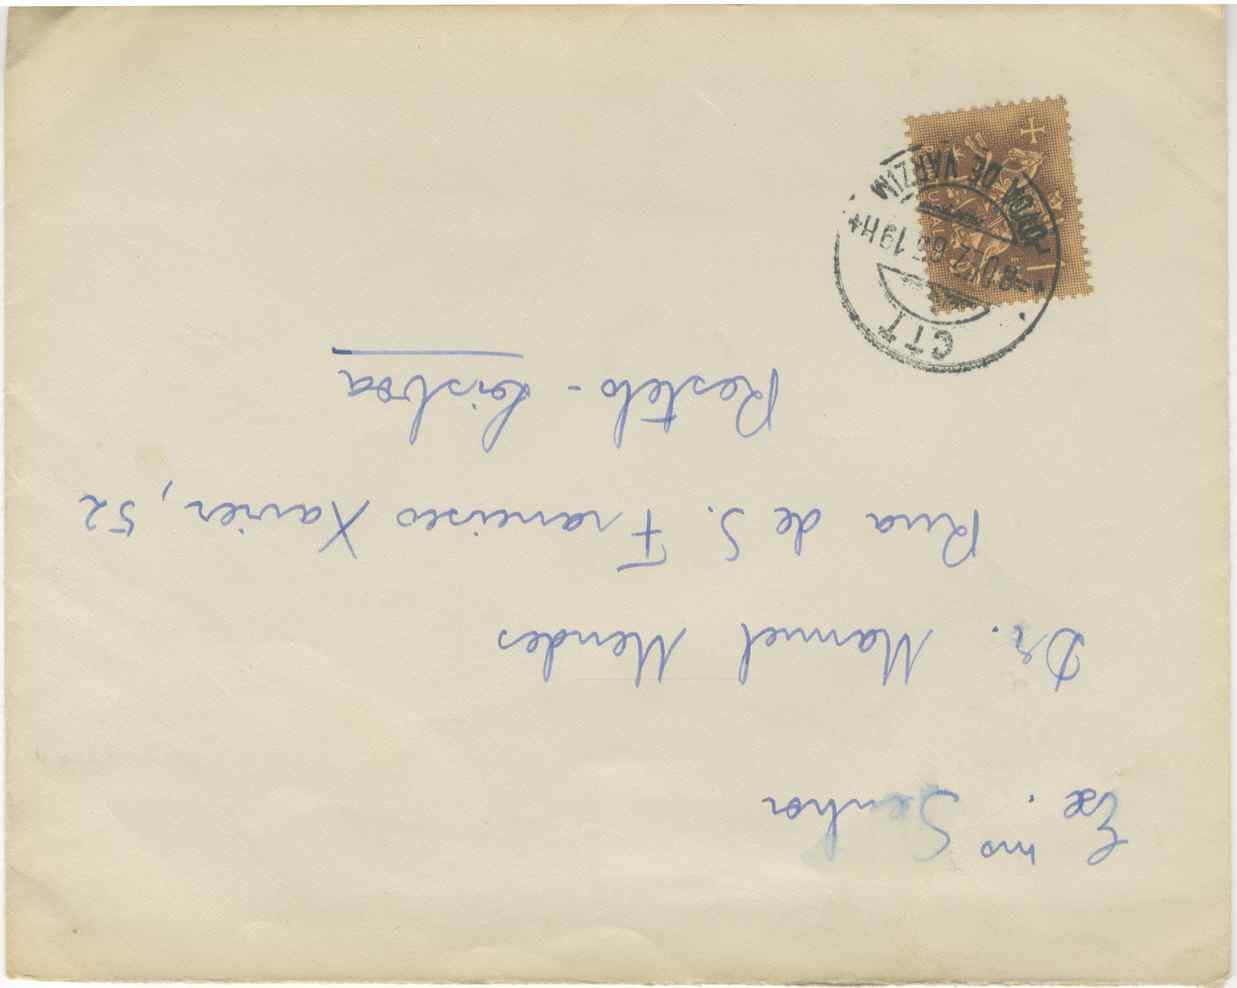 Ex.mo Senhor
Dr. Manuel Mendes
Rua de S. Francisco Xavier, 52
Restelo - Lisboa
CTT
19H
PÓVOA DE VARZIM